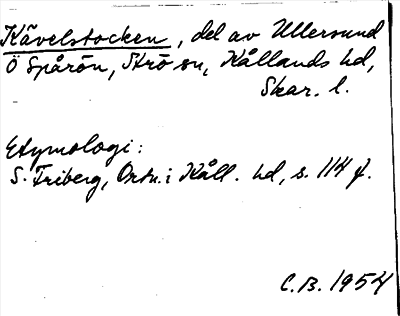 Kävelstocken, del av Ullersund
Ö Spårön, Strö sn, Kållands hd,
Skar. l.
Etymologi:
S. Friberg, Ortn. i Kåll. hd, s. 114 f.
C.B. 1954